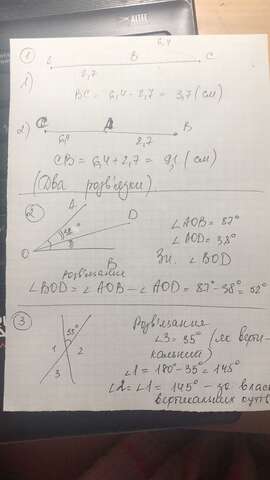 1
6,4
B C
2,7
1) BC = 6,4 - 2,7 = 3,7 (см)
2) C A B
6,4 2,7
CB = 6,4 + 2,7 = 9,1 (см)
(Два розв'язки).
2 A
D
38°
O B
∠AOB = 87°
∠AOD = 38°
Зн. ∠BOD
Розв'язання
∠BOD = ∠AOB - ∠AOD = 87° - 38° =
3
35°
1 2
3
Розв'язання
∠3 = 35° (як верти-
кальний)
∠1 = 180° - 35° = 145°
∠2 = ∠1 = 145° - за влас
вертикальних кутів